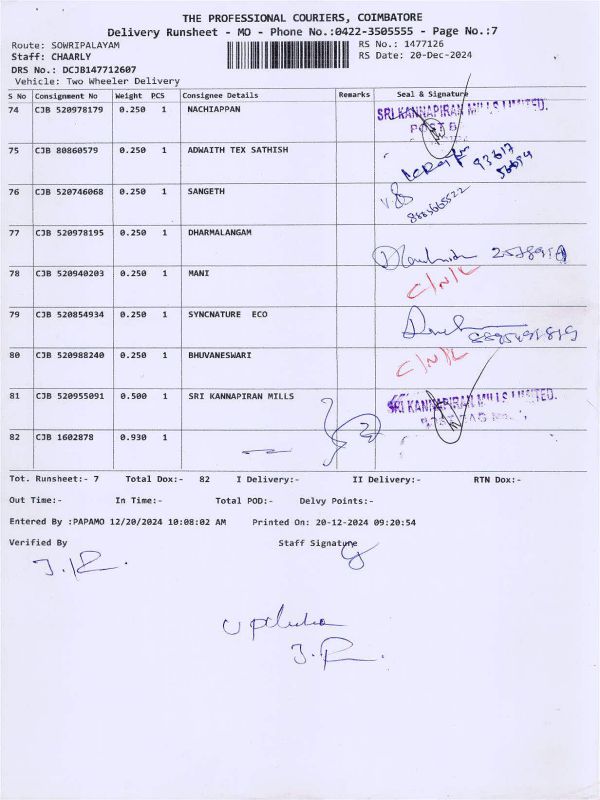 THE PROFESSIONAL COURIERS, COIMBATORE
Delivery Runsheet - MO - Phone No.:0422-3505555 - Page No.:7
Route: SOWRIPALAYAM RS No.: 1477126
Staff: CHAARLY RS Date: 20-Dec-2024
DRS No.: DCJB147712607
Vehicle: Two Wheeler Delivery
S No Consignment No Weight PCS Consignee Details Remarks Seal & Signature
74 CJB 520978179 0.250 1 NACHIAPPAN SRI KANNAPIRAN MILLS LIMITED.
POST B
75 CJB 80860579 0.250 1 ADWAITH TEX SATHISH
76 CJB 520746068 0.250 1 SANGETH
77 CJB 520978195 0.250 1 DHARMALANGAM
78 CJB 520940203 0.250 1 MANI C/N/L
79 CJB 520854934 0.250 1 SYNCNATURE ECO
80 CJB 520988240 0.250 1 BHUVANESWARI C/N/L
81 CJB 520955091 0.500 1 SRI KANNAPIRAN MILLS SRI KANNAPIRAN MILLS LIMITED.
82 CJB 1602878 0.930 1
Tot. Runsheet:- 7 Total Dox:- 82 I Delivery:- II Delivery:- RTN Dox:-
Out Time:- In Time:- Total POD:- Delvy Points:-
Entered By :PAPAMO 12/20/2024 10:08:02 AM Printed On: 20-12-2024 09:20:54
Verified By Staff Signature